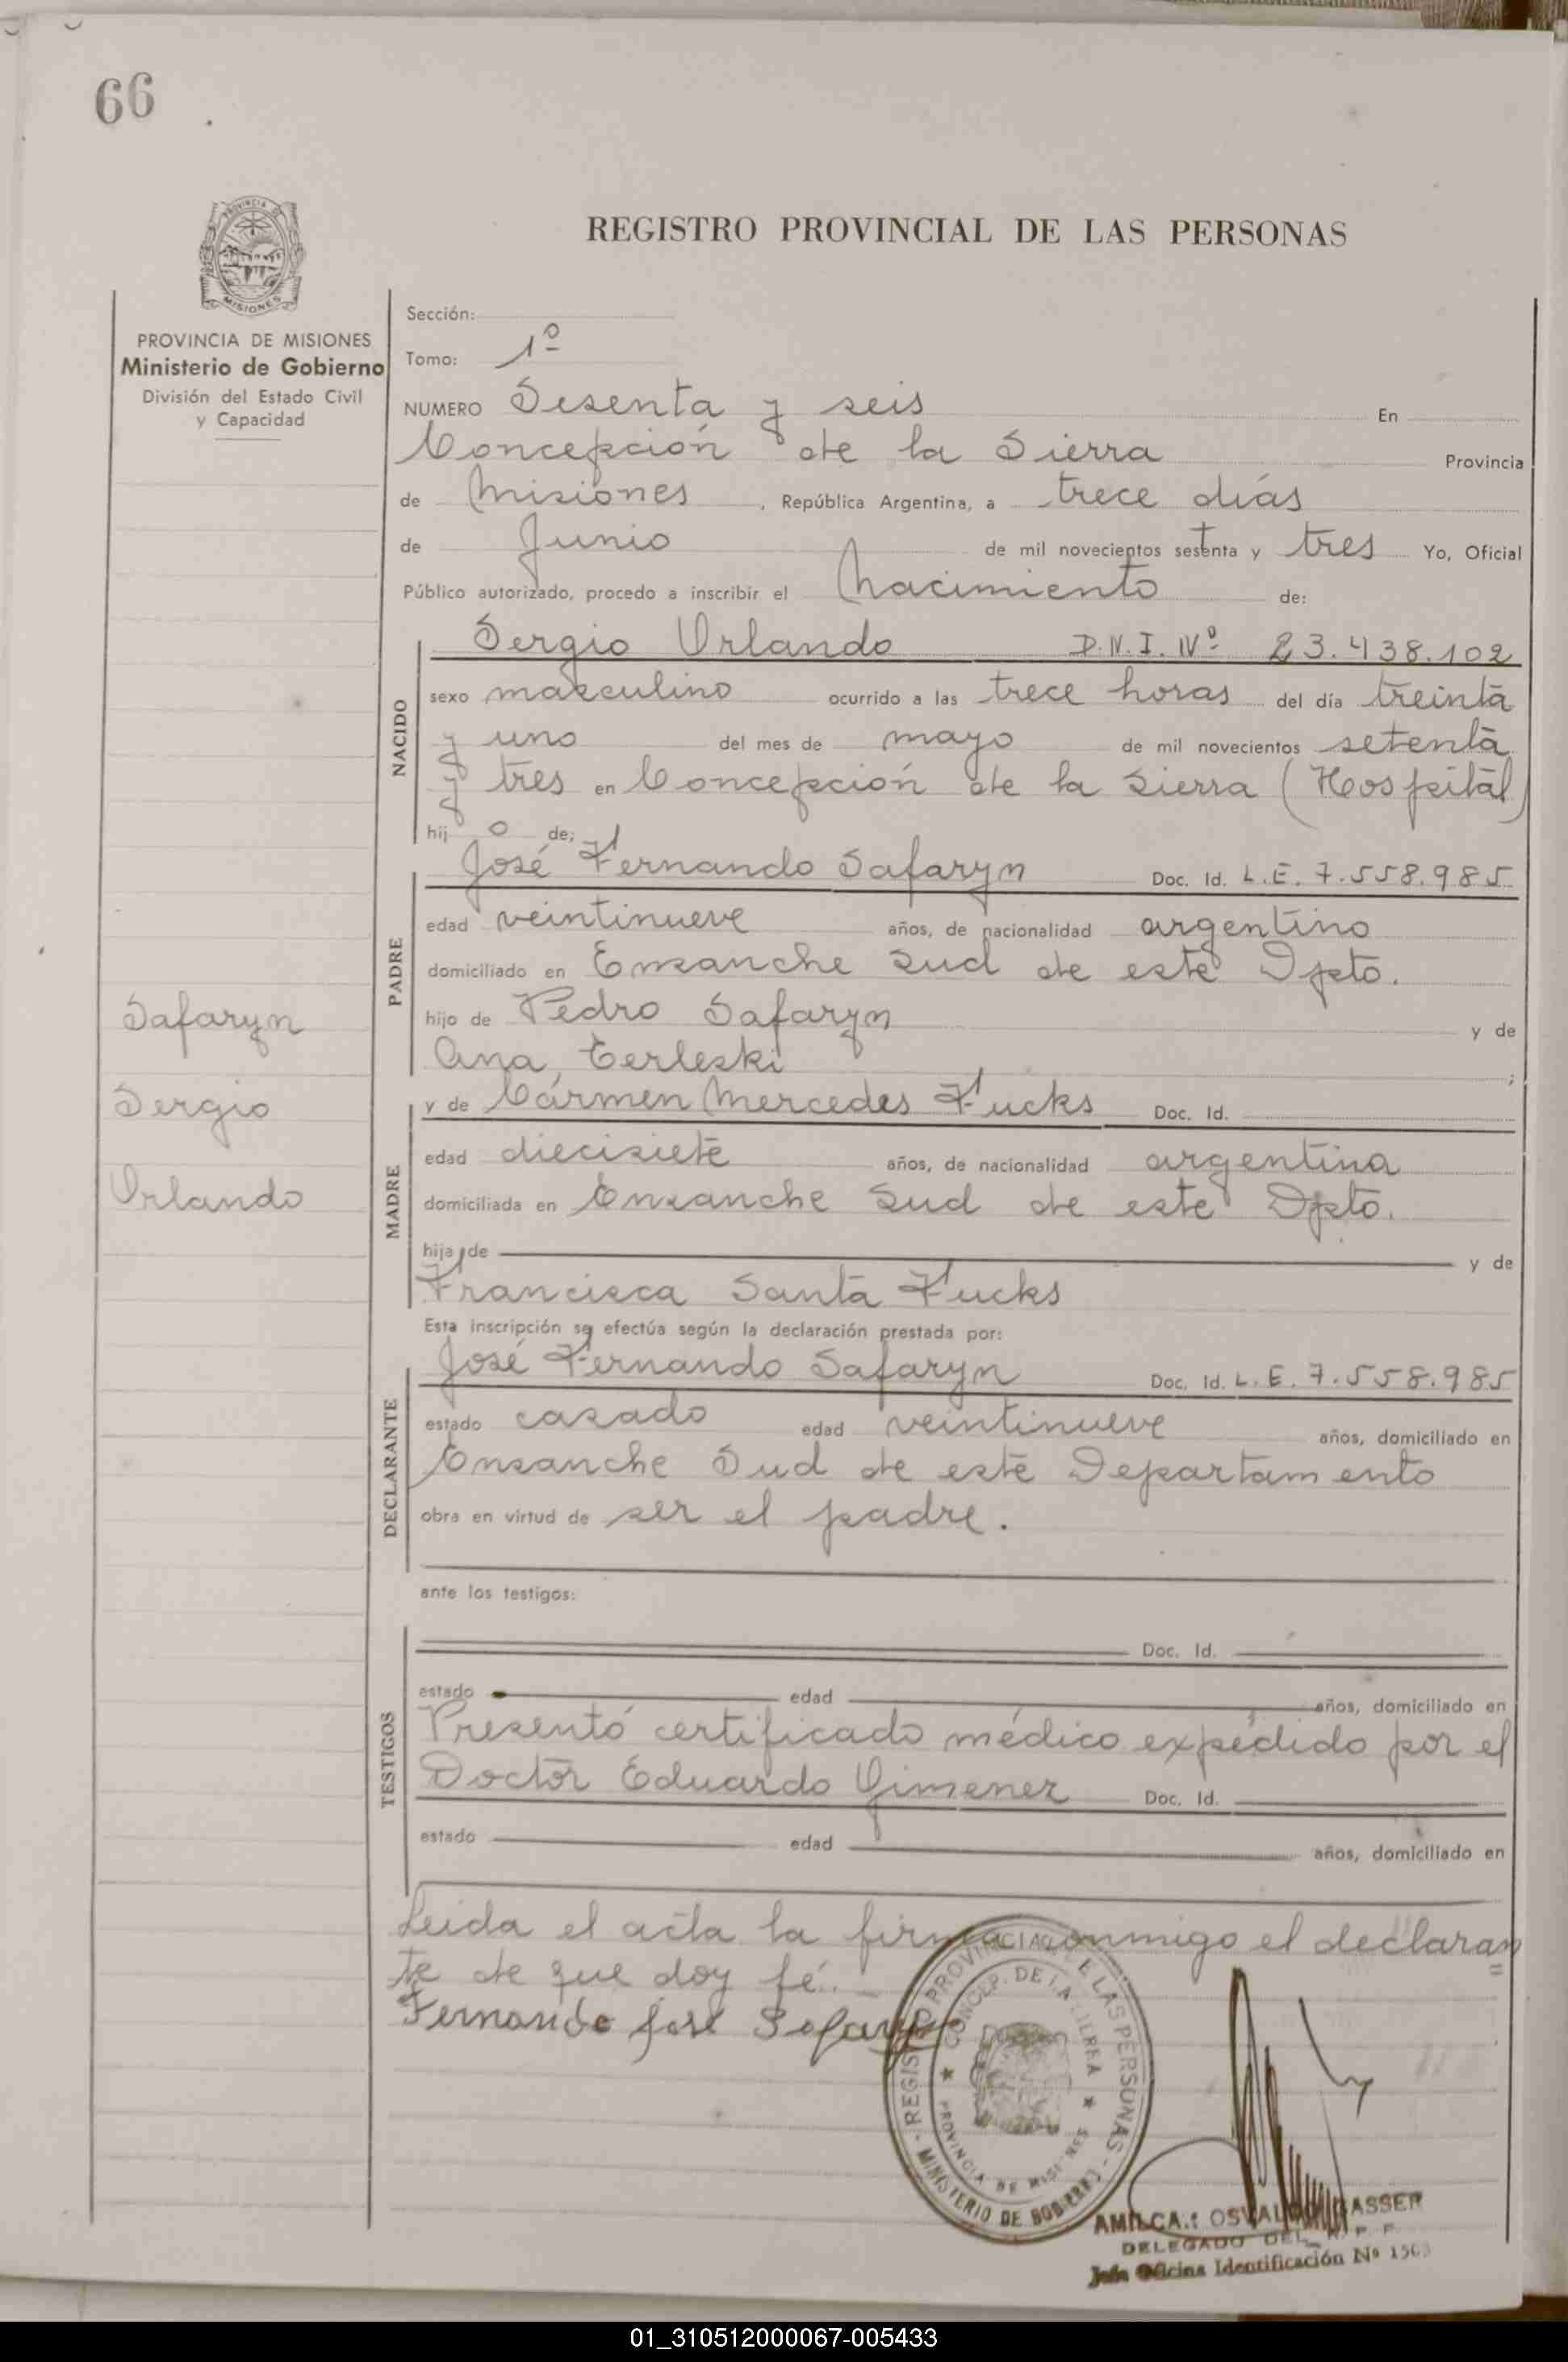 66
REGISTRO PROVINCIAL DE LAS PERSONAS
PROVINCIA DE MISIONES
Ministerio de Gobierno
División del Estado Civil
y Capacidad
Sección:
Tomo: 1º
NUMERO Sesenta y seis En
Concepción de la Sierra Provincia
de Misiones, República Argentina, a trece días
de Junio de mil novecientos setenta y tres Yo, Oficial
Público autorizado, procedo a inscribir el Nacimiento de:
NACIDO
Sergio Orlando D.N.I. Nº 23.438.102
sexo masculino ocurrido a las trece horas del día treinta
y uno del mes de mayo de mil novecientos setenta
y tres en Concepción de la Sierra (Hospital)
hij o de;
PADRE
José Fernando Safaryn Doc. Id. L.E. 7.558.985
edad veintinueve años, de nacionalidad argentino
domiciliado en Ensanche Sud de este Dpto.
hijo de Pedro Safaryn y de
Ana Terleski ;
MADRE
y de Cármen Mercedes Fucks Doc. Id.
edad diecisiete años, de nacionalidad argentina
domiciliada en Ensanche Sud de este Dpto.
hija de y de
Francisca Santa Fucks
Esta inscripción se efectúa según la declaración prestada por:
DECLARANTE
José Fernando Safaryn Doc. Id. L.E. 7.558.985
estado casado edad veintinueve años, domiciliado en
Ensanche Sud de este Departamento
obra en virtud de ser el padre.
ante los testigos:
TESTIGOS
Doc. Id.
estado edad años, domiciliado en
Presentó certificado médico expedido por el
Doctor Eduardo Gimenez Doc. Id.
estado edad años, domiciliado en
Leida el acta la firma conmigo el declaran
te de que doy fé.
Fernando José Safaryn
Safaryn
Sergio
Orlando
REGISTRO PROVINCIAL DE LAS PERSONAS - MINISTERIO DE GOBIERNO
CONCEP. DE LA SIERRA
PROVINCIA DE MISIONES
OSVALDO GASSER
DELEGADO DEL R. P. P.
Jefe Oficina Identificación Nº
01_310512000067-005433